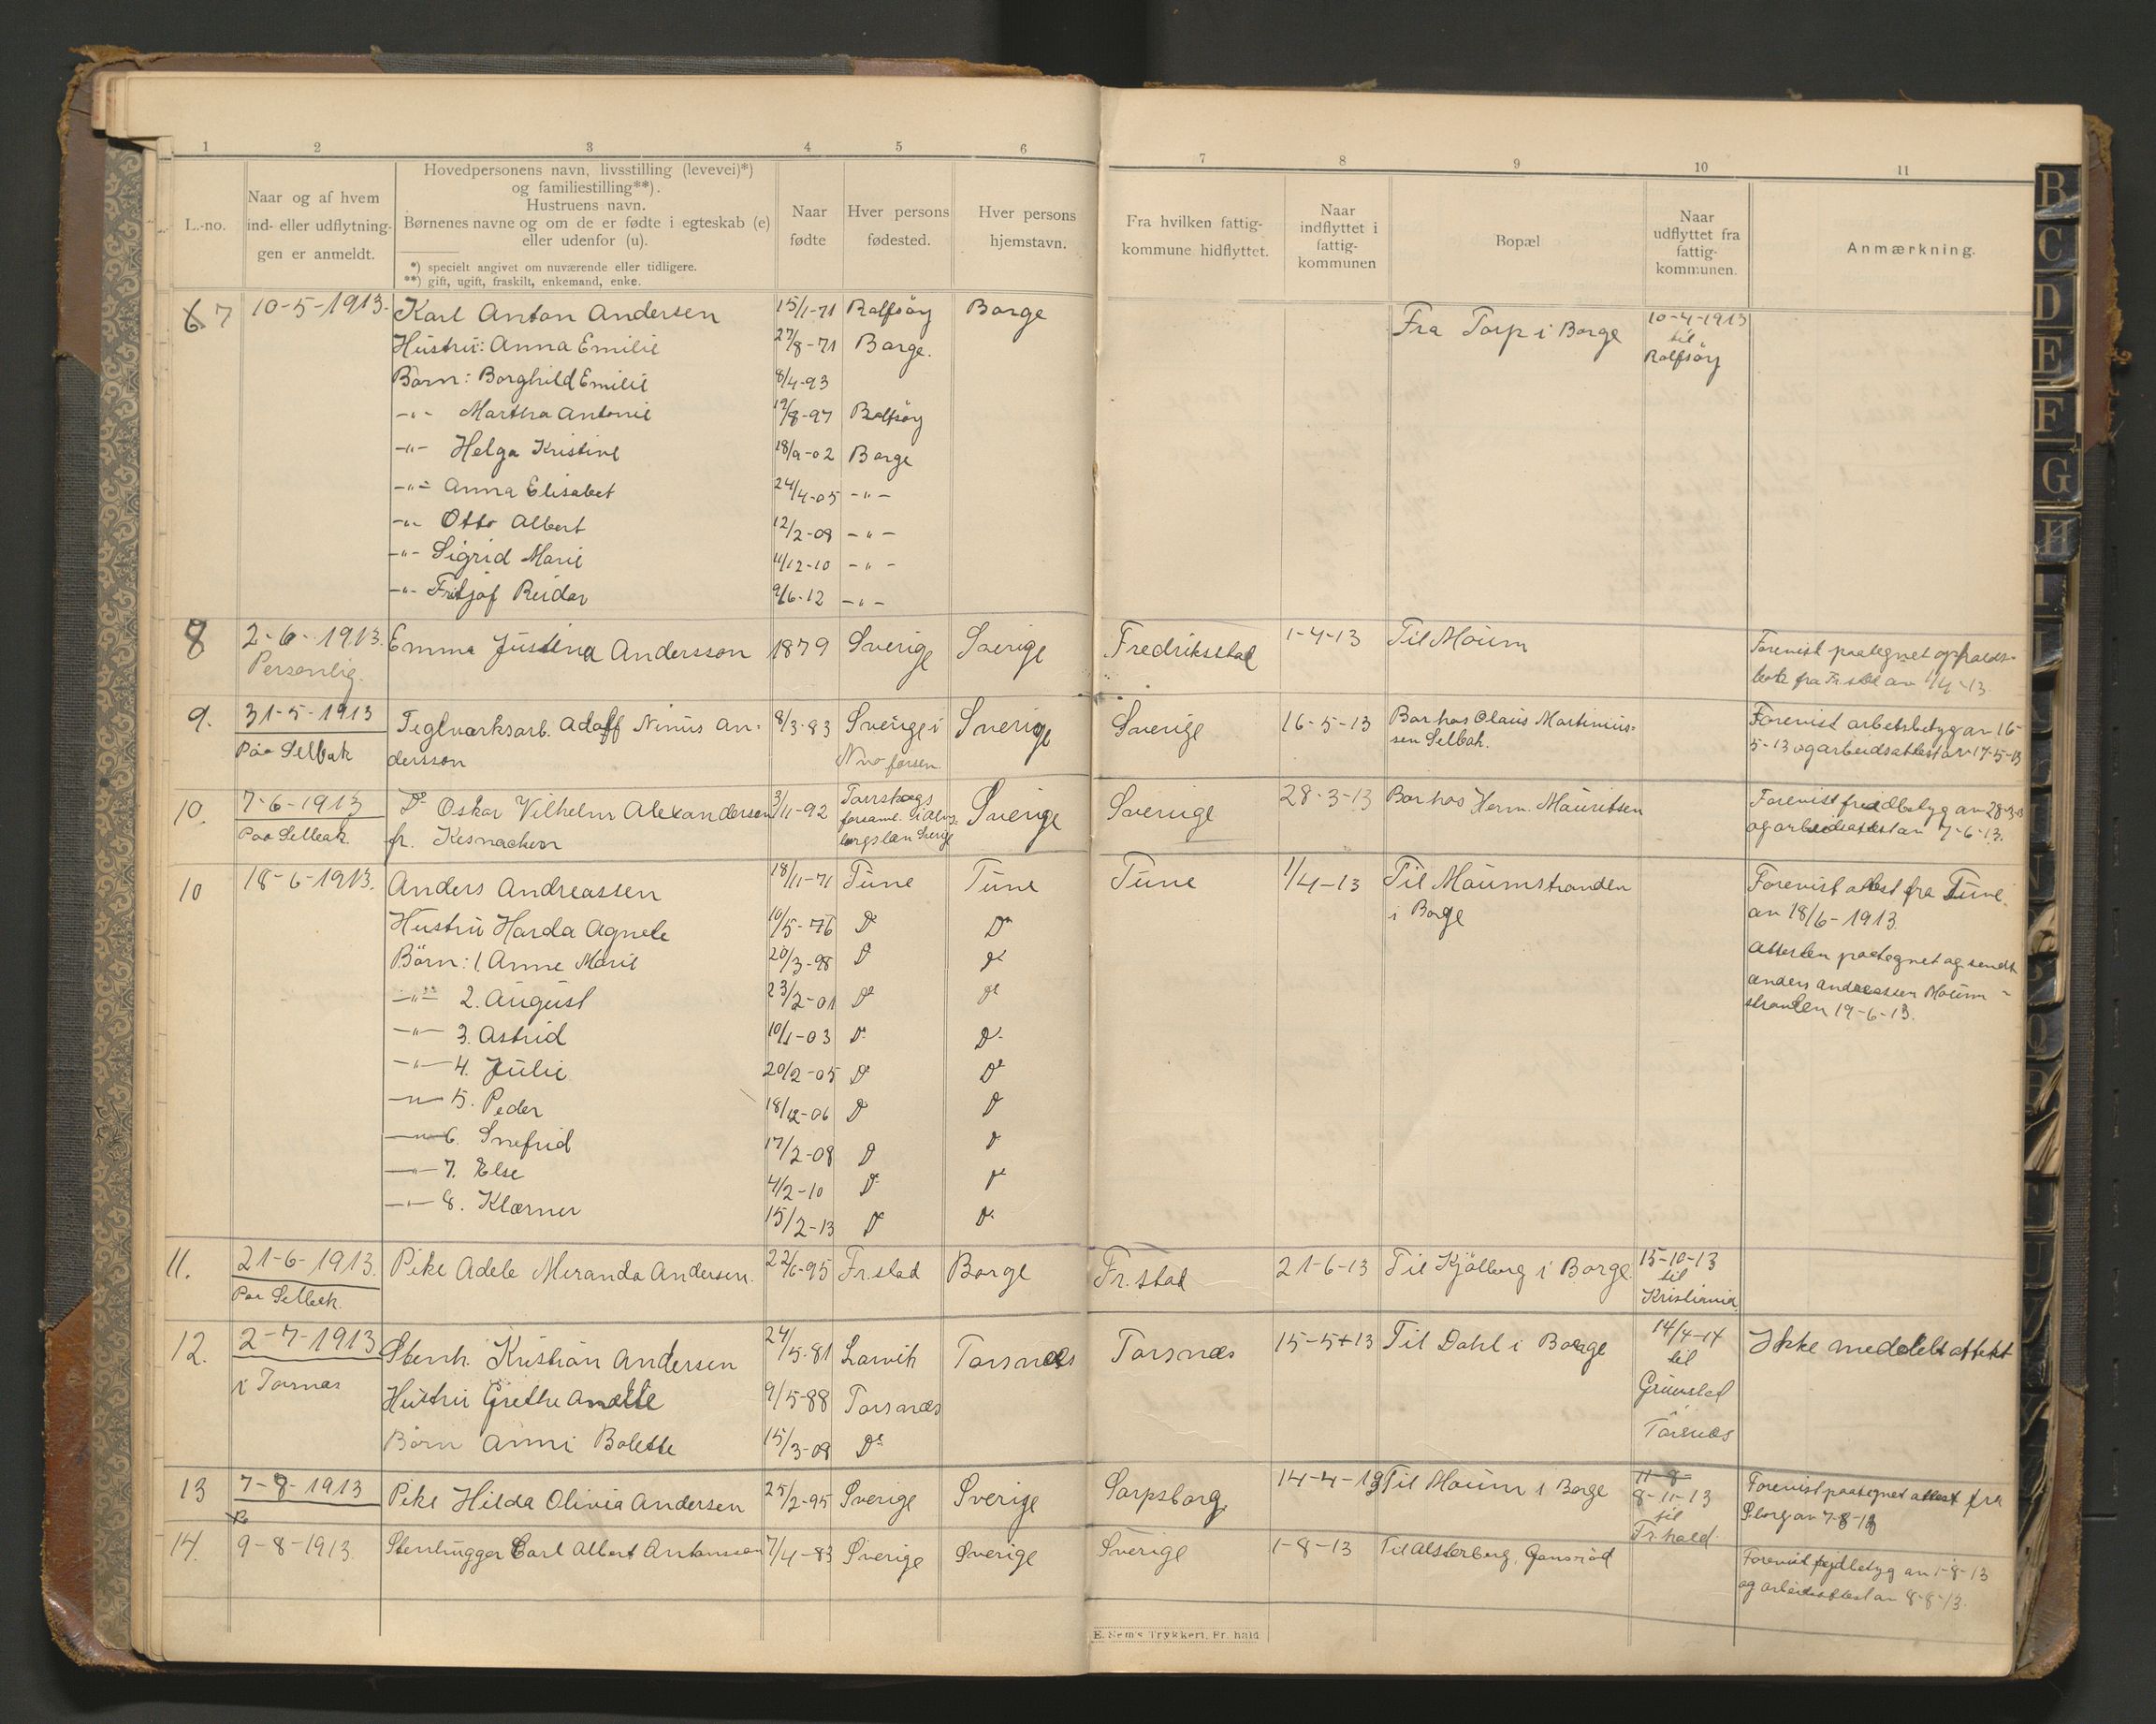 1 2 3 4 5 6 7 8 9 10 11
L.-no.
Naar og af hvem
ind- eller udflytnin-
gen er anmeldt.
Hovedpersonens navn, livsstilling (levevei)*)
og familiestilling**).
Hustruens navn.
Børnenes navne og om de er fødte i egteskab (e)
eller udenfor (u).
*) specielt angivet om nuværende eller tidligere.
**) gift, ugift, fraskilt, enkemand, enke.
Naar
fødte
Hver persons
fødested.
Hver persons
hjemstavn.
Fra hvilken fattig-
kommune hidflyttet.
Naar
indflyttet i
fattig-
kommunen
Bopæl
Naar
udflyttet fra
fattig-
kommunen.
Anmærkning.
7 10-5-1913. Karl Anton Andersen 15/1-71 Rolfsöy Borge Fra Torp i Borge 10-4-1913
til
Rolfsöy
Hustru: Anna Emilie 27/8-71 Borge.
Börn: Borghild Emilie 8/4-93
-"- Martha Antonie 19/8-97 Rolfsöy
-"- Helga Kristine 18/9-02 Borge
-"- Anna Elisabet 24/4-05 -"-
-"- Otto Albert 12/2-08 -"-
-"- Sigrid Marie 11/12-10 -"-
-"- Fritjof Reidar 9/6-12 -"-
8 2-6-1913. Emma Justina Andersson 1879 Sverige Sverige Fredrikstad 1-4-13 Til Moum
Personlig.
Forevist paategnet opholds-
bok fra Fr.stad av 1/4-13.
9. 31-5-1913 Teglverksarb. Adolf Ninus An- 8/3-83 Sverige i Sverige Sverige 16-5-13 Bor hos Olaus Martinius-
Paa Selbak dersson
sen Selbak.
Forevist arbetsbetyg av 16-
5-13 og arbeidsattest av 17-5-13
10. 7-6-1913 Do Oskar Vilhelm Alexandersen 3/11-92 Sverige Sverige 28-3-13 Bor hos Herm. Mauritsen
Paa Selbak. fr.
Torrskogs
forsaml.
Forevist fredbetyg av 28-3-13
og arbeidsattest av 7-6-13.
10 18-6-1913. Anders Andreassen 18/11-71 Tune Tune Tune 1/4-13 Til Moumstranden
i Borge
Forevist attest fra Tune
av 18/6-1913.
Attesten paategnet og sendt
Anders Andreassen Moum-
stranden 19-6-13.
Hustru Harda Agnete 10/5-76 Do Do
Börn: 1. Anne Marie 20/3-98 Do Do
-"- 2. August 23/2-01 Do Do
-"- 3. Astrid 10/1-03 Do Do
-"- 4. Julie 20/2-05 Do Do
-"- 5. Peder 18/12-06 Do Do
-"- 6. Snefrid 17/2-08 Do Do
-"- 7. Else 4/2-10 Do Do
-"- 8. Klarner 15/2-13 Do Do
11. 21-6-1913. Pike Adele Miranda Andersen. 22/6-95 Fr.stad Borge Fr.stad 21-6-13 Til Kjölberg i Borge. 15-10-13
til
Kristiania.
Paa Selbak.
12. 2-7-1913 Stenh. Kristian Andersen 24/5-81 Larvik Torsnæs Torsnæs 15-5-13 Til Dahl i Borge 14/4-14
til
Grimstad
Torsnæs
Ikke meddelt attest
i Torsnæs
Hustru Grethe Anette 9/5-88 Torsnæs
Börn Anni Bolette 15/3-08 Do
13 7-8-1913 Pike Hilda Olivia Andersen 25/2-95 Sverige Sverige Sarpsborg 14-4-13 Til Moum i Borge 11-8-
8-11-13
til
Fr.hald.
Forevist paategnet attest fra
Sborg av 7-8-13
14. 9-8-1913. Stenhugger Carl Albert Antonsson 7/4-83 Sverige Sverige Sverige 1-8-13 Til Alsterberg, Gansröd
Forevist frejdbetyg av 1-8-13
og arbeidsattest av 8-8-13.
E. Sem's Trykkeri, Fr.hald
B
C
D
E
F
G
H
I
N
O
U
V